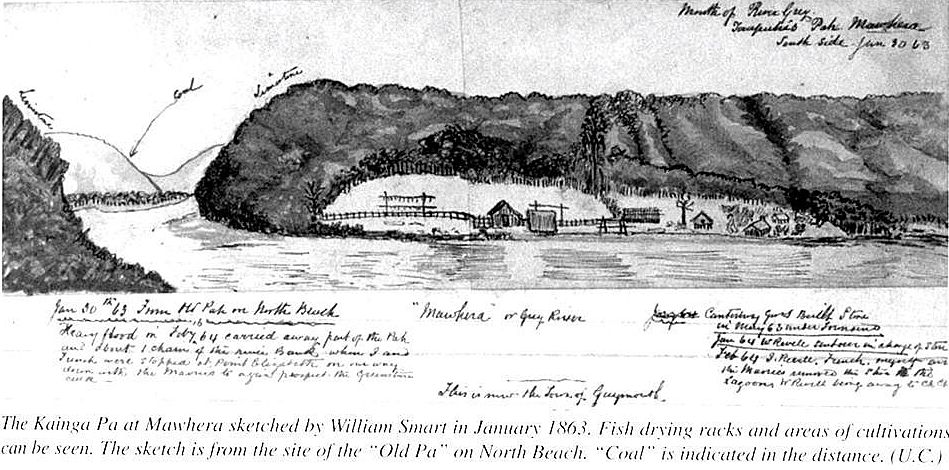 Mouth of River Grey.
Pah Mawhera
South Side Jan 30 63
Limestone
Coal
Limestone
Jan 30th 63 From Old Pah on North Beach
"Mawhera" or Grey River
Canterbury Govt Built Store
in May 63 under Townsend
Jan 64 W Revell sent over in charge of Store
Feb 64 J. Revell, French, myself and
the Maories removed the Store to the
Lagoon W Revell being away to Ch Ch
Heavy flood in Feby 64 carried away part of the Pah
and about 1 chain of the river Bank, when I and
French were stopped at Point Elizabeth on our way
down with the Maories to again prospect the Greenstone
This is now the Town of Greymouth.
The Kainga Pa at Mawhera sketched by William Smart in January 1863. Fish drying racks and areas of cultivations
can be seen. The sketch is from the site of the “Old Pa” on North Beach. “Coal” is indicated in the distance. (U.C.)